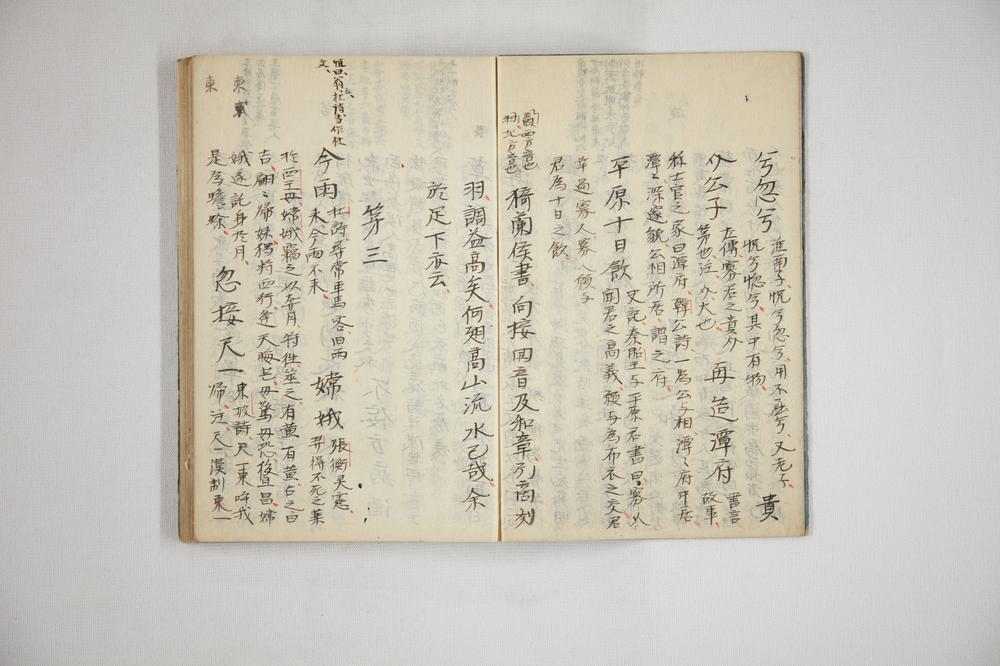 兮忽兮
淮南子、恍兮忽兮、用不屈兮、又老子
恍兮惚兮、其中有物、
貴
介公子
左傳寡君之貴介
弟也注、介大也
再造潭府
書言
故事
称士官之家曰潭府、韓公詩一為公与相潭々府中居、
潭々深邃貌公相所居、謂之府、
平原十日飲
史記秦昭王与平原君書曰、寡人
聞君之高義、願与為布衣之交君
幸過寡人寡人願与
君為十日之飲、
商、西方音也
羽、北方音也
猗蘭侯書、向接用音及和章引商刻
羽、調益高矣何廼高山流水已哉余
於足下亦云、
第三
今雨
杜詩尋常車馬客旧雨
来今雨不来、
嫦娥
張衡灵憲、
羿得不死之薬
於西王母嫦娥竊之以奔月、将往筮之有黄有黄占之曰
吉、翩々帰妹独将西行、逢天晦芒毋驚毋恐後且昌、嫦
娥遂託身於月、
是為蟾蜍、
忽接尺一
東坡詩、尺一東呼我
帰、注、尺一漢制東一
東
東